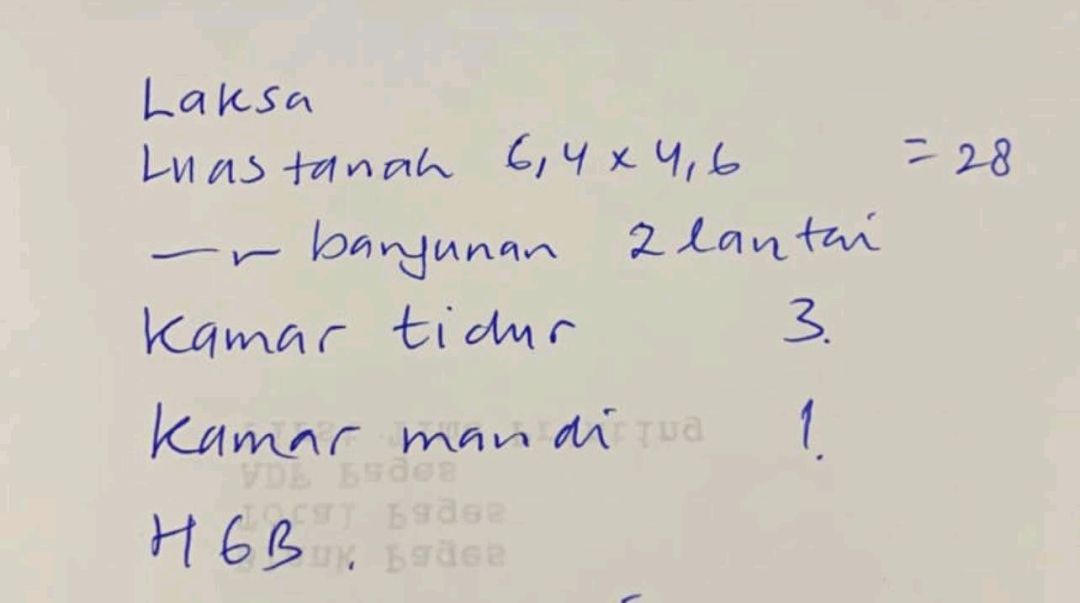 Laksa
Luas tanah 6,4 x 4,6 = 28
—〃— bangunan 2 lantai
Kamar tidur 3.
Kamar mandi 1.
HGB.